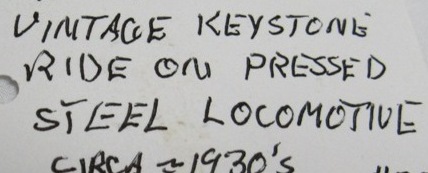 VINTAGE KEYSTONE
RIDE ON PRESSED
STEEL LOCOMOTIVE
CIRCA ~1930'S